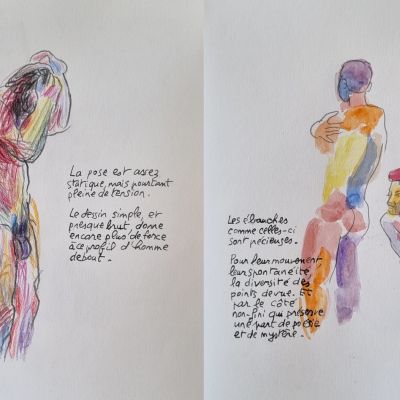 La pose est assez
statique, mais pourtant
pleine de tension.
Le dessin simple, et
presque brut donne
encore plus de force
à ce profil d'homme
debout.
Les ébauches
comme celles-ci
sont précieuses.
Pour leur mouvement
leur spontanéité,
la diversité des
points de vue. Et
par le côté
non-fini qui préserve
une part de poésie
et de mystère.